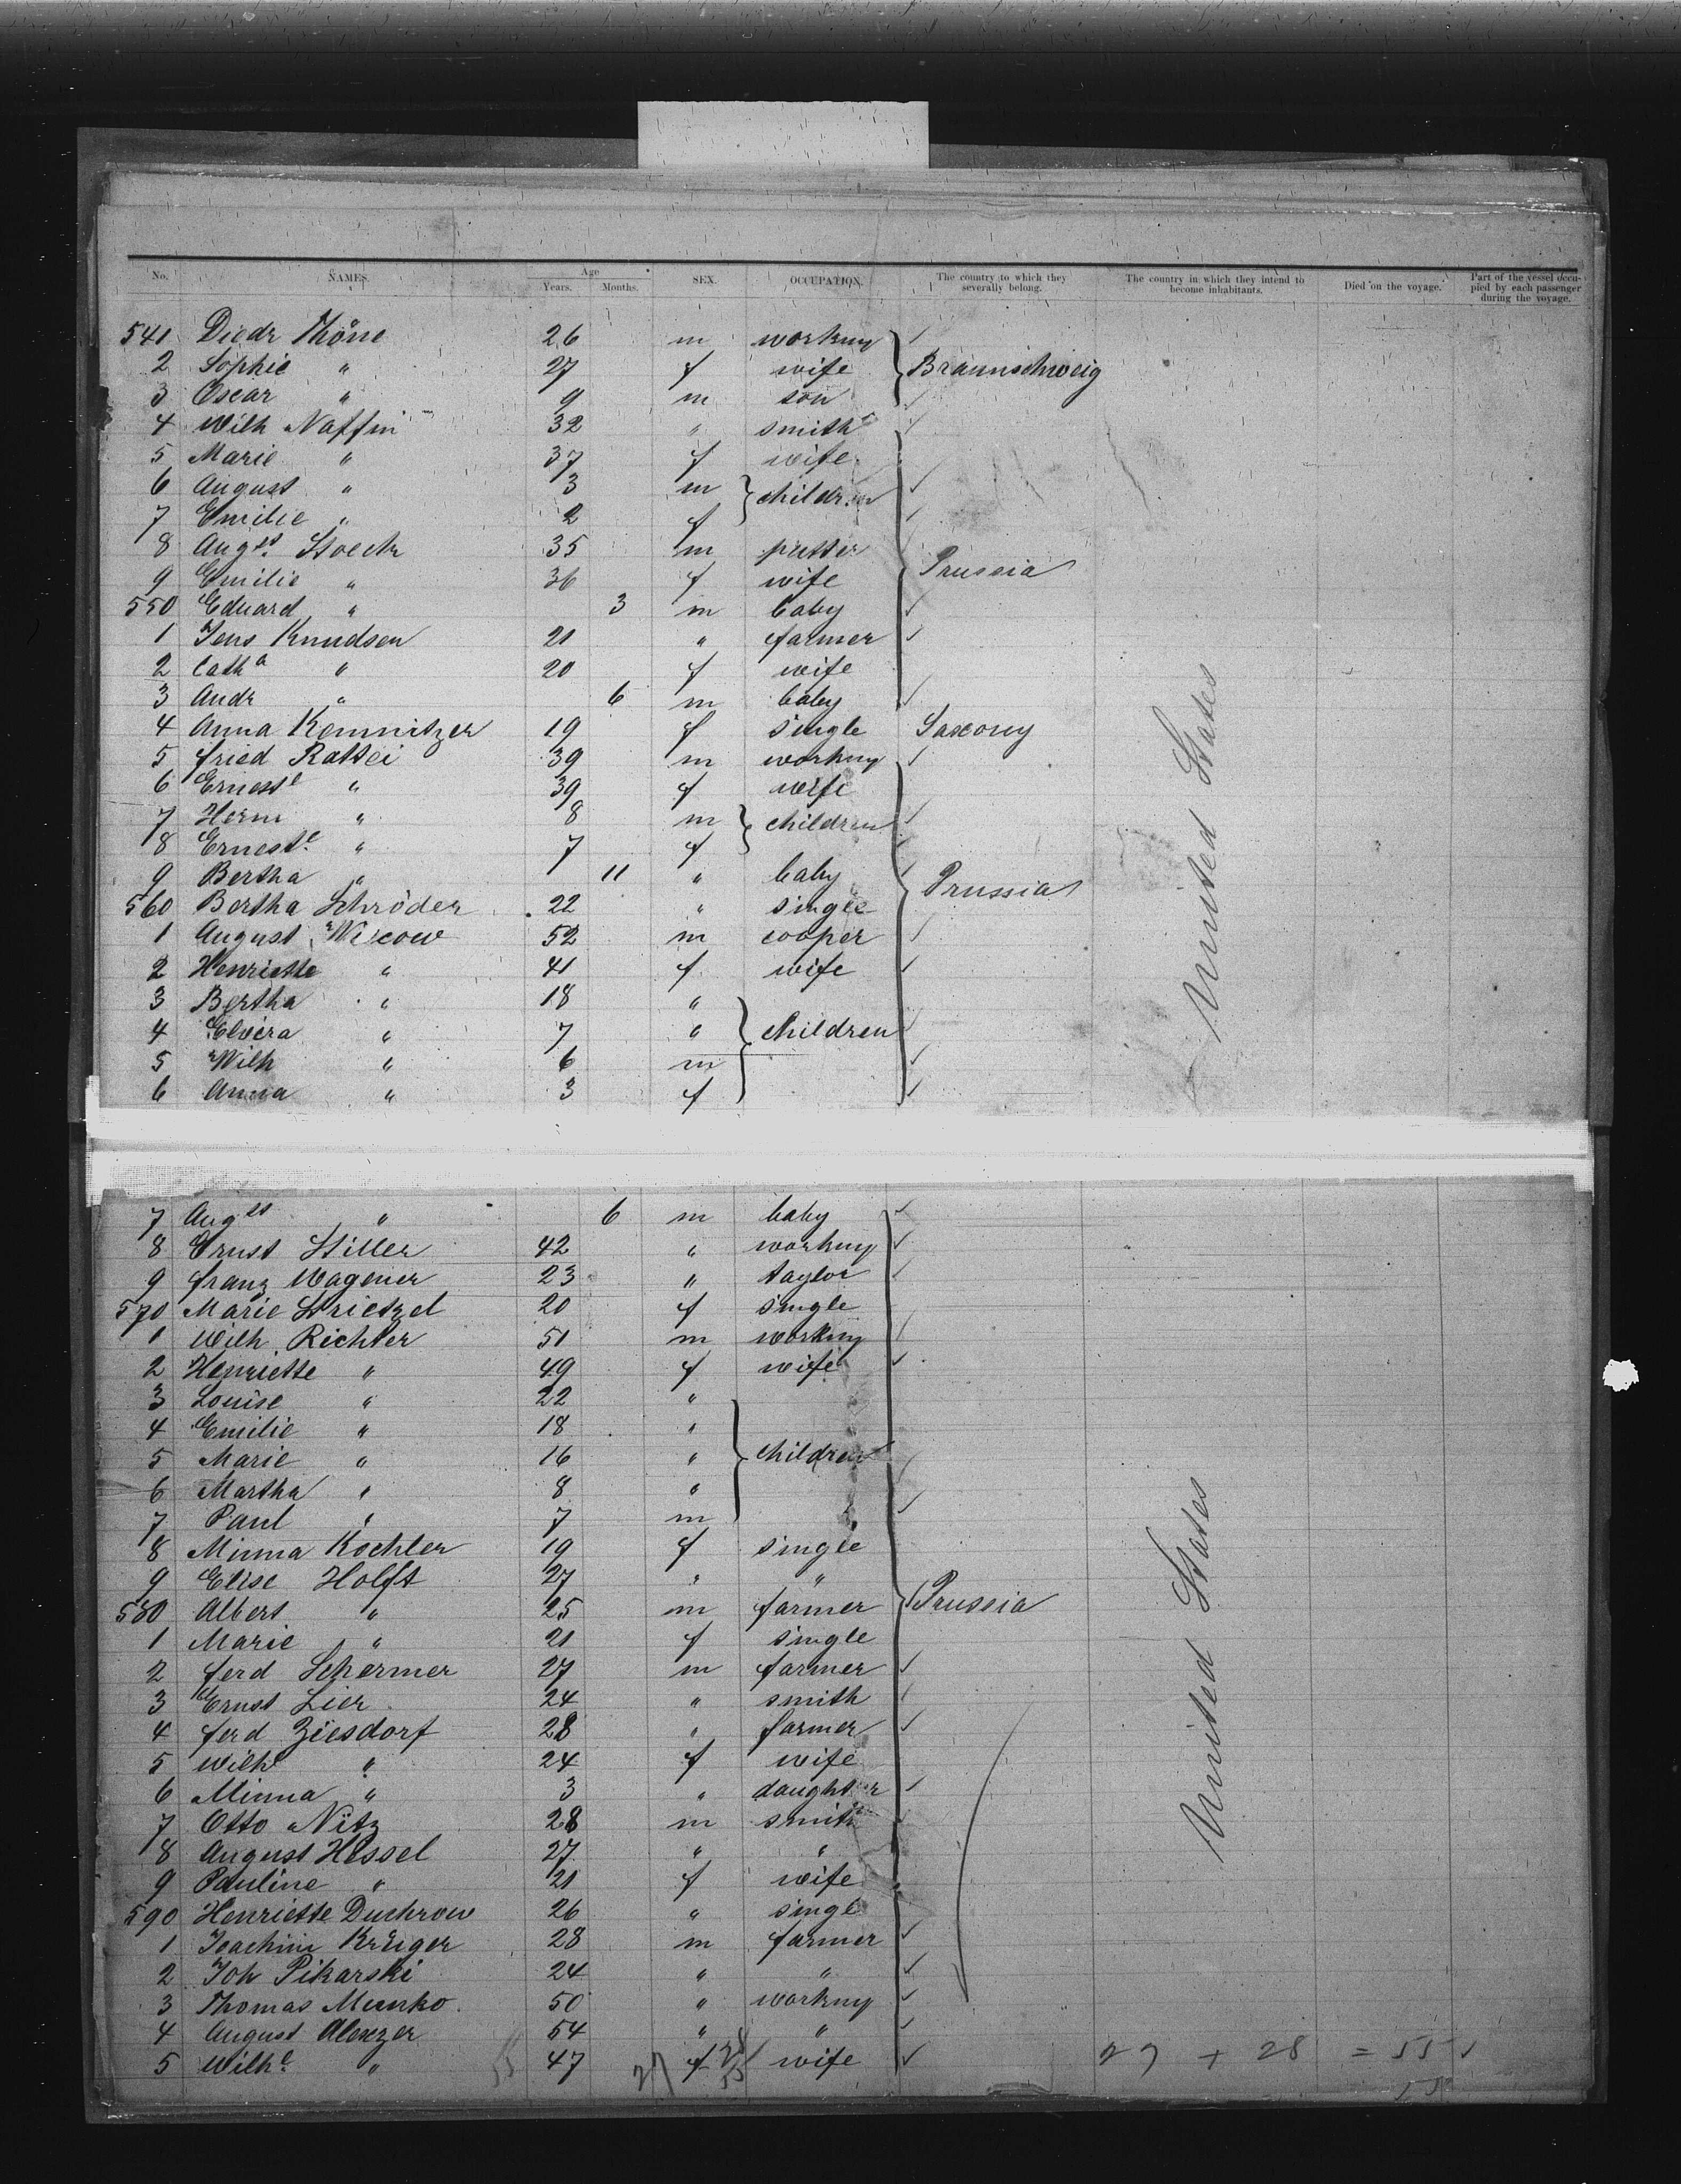 No. NAMES. Age Years. Months. SEX. OCCUPATION. The country to which they severally belong. The country in which they intend to become inhabitants. Died on the voyage. Part of the vessel occupied by each passenger during the voyage.
541 Diedr Thöne 26 m workmg
2 Sophie " 27 f wife Braunschweig
3 Oscar " 9 m son
4 Wilh Naffin 32 " smith
5 Marie " 37 f wife
6 August " 3 m children
7 Emilie " 2 f
8 Augst Stoeck 35 m putter
9 Emilie " 36 f wife Prussia
550 Eduard " 3 m baby
1 Jens Knudsen 21 " farmer
2 Catha " 20 f wife
3 Andr " 6 m baby
4 Anna Kemnitzer 19 f single Saxony
5 fried Rattei 39 m workmg
6 Erneste " 39 f wife
7 Herm " 8 m children
8 Erneste " 7 f
9 Bertha " 11 " baby Prussia
560 Bertha Schröder 22 " single
1 August 52 m cooper
2 Henriette " 41 f wife
3 Bertha " 18 "
4 Elvira " 7 " children
5 Wilh " 6 m
6 Anna " 3 f
United States
7 Augst " 6 m baby
8 Ernst Stiller 42 " workmg
9 franz Wagener 23 " taylor
570 Marie Strietzel 20 f single
1 Wilh Richter 51 m workmg
2 Henriette " 49 f wife
3 Louise " 22 "
4 Emilie " 18 "
5 Marie " 16 " children
6 Martha " 8 "
7 Paul " 7 m
8 Minna Kochler 19 f single
9 Elise Holft 27 " "
580 Albert " 25 m farmer Prussia
1 Marie " 21 f single
2 ferd Schermer 27 m farmer
3 Ernst Lier 24 " smith
4 ferd Ziesdorf 28 " farmer
5 Wilhe " 24 f wife
6 Minna " 3 " daughter
7 Otto Nitz 28 m smith
8 August Hessel 27 " "
9 Pauline " 21 f wife
590 Henriette Duchrow 26 " singl
1 Joachim Krüger 28 m farmer
2 Joh Pikarski 24 " "
3 Thomas Munko 50 " workmg
4 August 54 " "
5 Wilhe " 47 f wife
United States
27 + 28 = 55
55
27
28
55